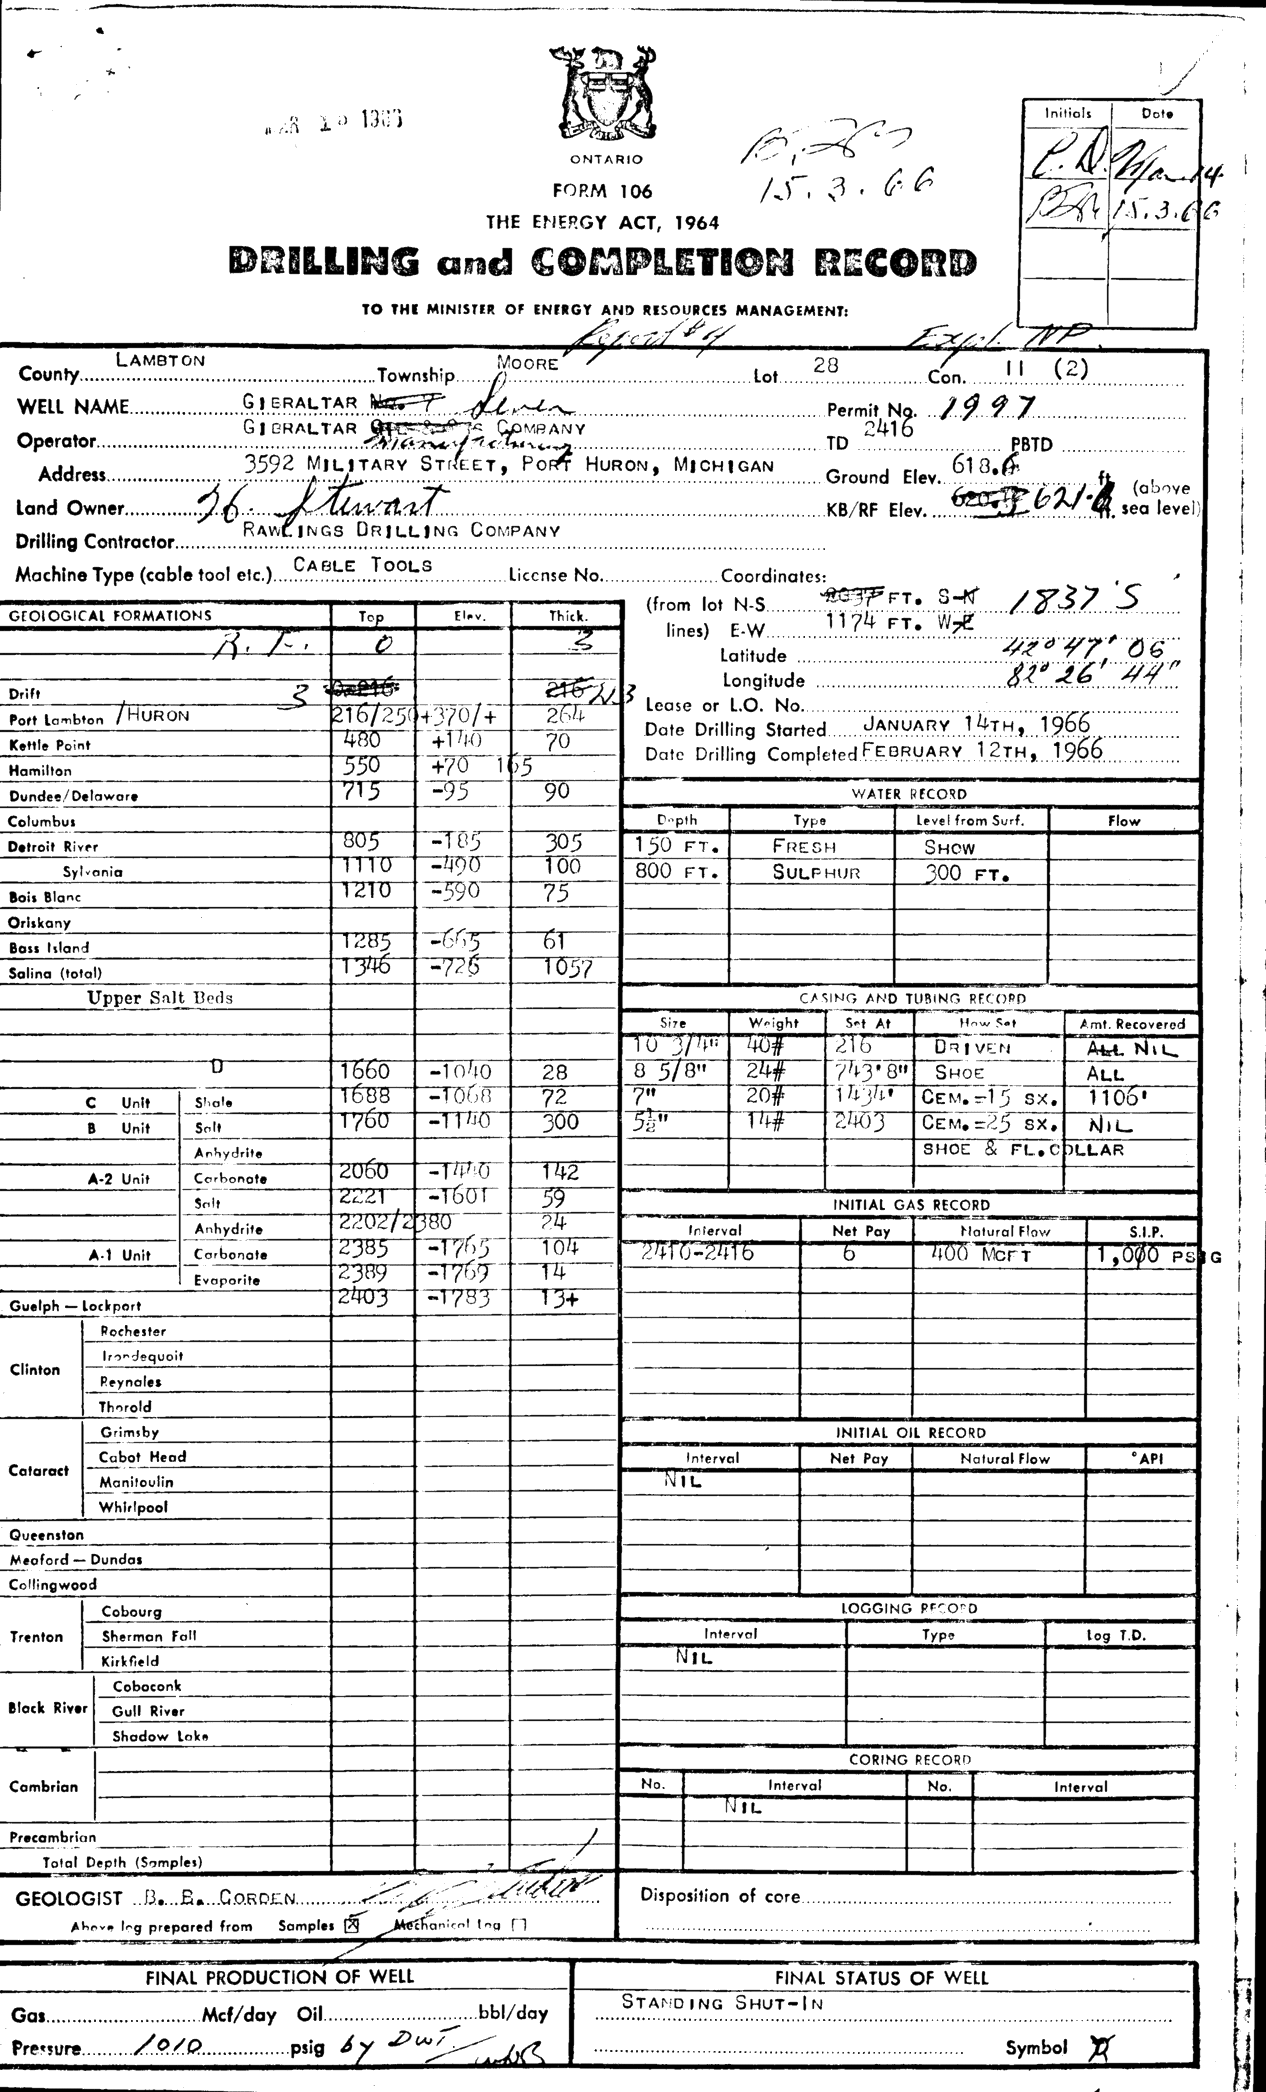 1966
ONTARIO
15.3.66
FORM 106
THE ENERGY ACT, 1964
DRILLING and COMPLETION RECORD
TO THE MINISTER OF ENERGY AND RESOURCES MANAGEMENT:
Initials Date
P.D. Mar. 14
15.3.66
Report #4 Expl. NP.
County LAMBTON Township MOORE Lot 28 Con. 11 (2)
WELL NAME GIBRALTAR No. 7 Seven Permit No. 1997
Operator GIBRALTAR Manufacturing COMPANY TD 2416 PBTD
Address 3592 MILITARY STREET, PORT HURON, MICHIGAN Ground Elev. 618.6 ft.
Land Owner H. Stewart KB/RF Elev. 621.6 ft. (above sea level)
Drilling Contractor RAWLINGS DRILLING COMPANY
Machine Type (cable tool etc.) CABLE TOOLS License No. Coordinates:
(from lot lines) N-S 2037 FT. S-N 1837'S
E-W 1174 FT. W-E
Latitude 42° 47' 06
Longitude 82° 26' 44"
Lease or L.O. No.
Date Drilling Started JANUARY 14TH, 1966
Date Drilling Completed FEBRUARY 12TH, 1966
GEOLOGICAL FORMATIONS Top Elev. Thick.
R.F. 0 3
Drift 3 0-216 216 213
Port Lambton /HURON 216/250 +370/+ 264
Kettle Point 480 +140 70
Hamilton 550 +70 165
Dundee/Delaware 715 -95 90
Columbus
Detroit River 805 -185 305
Sylvania 1110 -490 100
Bois Blanc 1210 -590 75
Oriskany
Bass Island 1285 -665 61
Salina (total) 1346 -726 1057
Upper Salt Beds
D 1660 -1040 28
C Unit Shale 1688 -1068 72
B Unit Salt 1760 -1140 300
Anhydrite
A-2 Unit Carbonate 2060 -1440 142
Salt 2221 -1601 59
Anhydrite 2202/2380 24
A-1 Unit Carbonate 2385 -1765 104
Evaporite 2389 -1769 14
Guelph — Lockport 2403 -1783 13+
Clinton
Rochester
Irondequoit
Reynales
Thorold
Cataract
Grimsby
Cabot Head
Manitoulin
Whirlpool
Queenston
Meaford — Dundas
Collingwood
Trenton
Cobourg
Sherman Fall
Kirkfield
Black River
Coboconk
Gull River
Shadow Lake
Cambrian
Precambrian
Total Depth (Samples)
GEOLOGIST B. E. CORDEN
Above log prepared from Samples ☒ Mechanical Log ☐
WATER RECORD
Depth Type Level from Surf. Flow
150 FT. FRESH SHOW
800 FT. SULPHUR 300 FT.
CASING AND TUBING RECORD
Size Weight Set At How Set Amt. Recovered
10 3/4" 40# 216 DRIVEN ALL NIL
8 5/8" 24# 743'8" SHOE ALL
7" 20# 1434' CEM.=15 SX. 1106'
5½" 14# 2403 CEM.=25 SX. NIL
SHOE & FL.COLLAR
INITIAL GAS RECORD
Interval Net Pay Natural Flow S.I.P.
2410-2416 6 400 MCFT 1,000 PSIG
INITIAL OIL RECORD
Interval Net Pay Natural Flow °API
NIL
LOGGING RECORD
Interval Type Log T.D.
NIL
CORING RECORD
No. Interval No. Interval
NIL
Disposition of core
FINAL PRODUCTION OF WELL
Gas Mcf/day Oil bbl/day
Pressure 1010 psig by DWT
FINAL STATUS OF WELL
STANDING SHUT-IN
Symbol